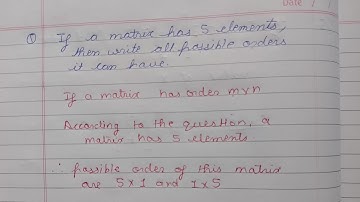 Date / /
Q If a matrix has 5 elements,
then write all possible orders
it can have.
If a matrix has order mxn
According to the question, a
matrix has 5 elements
∴ possible order of this matrix
are 5x1 and 1x5